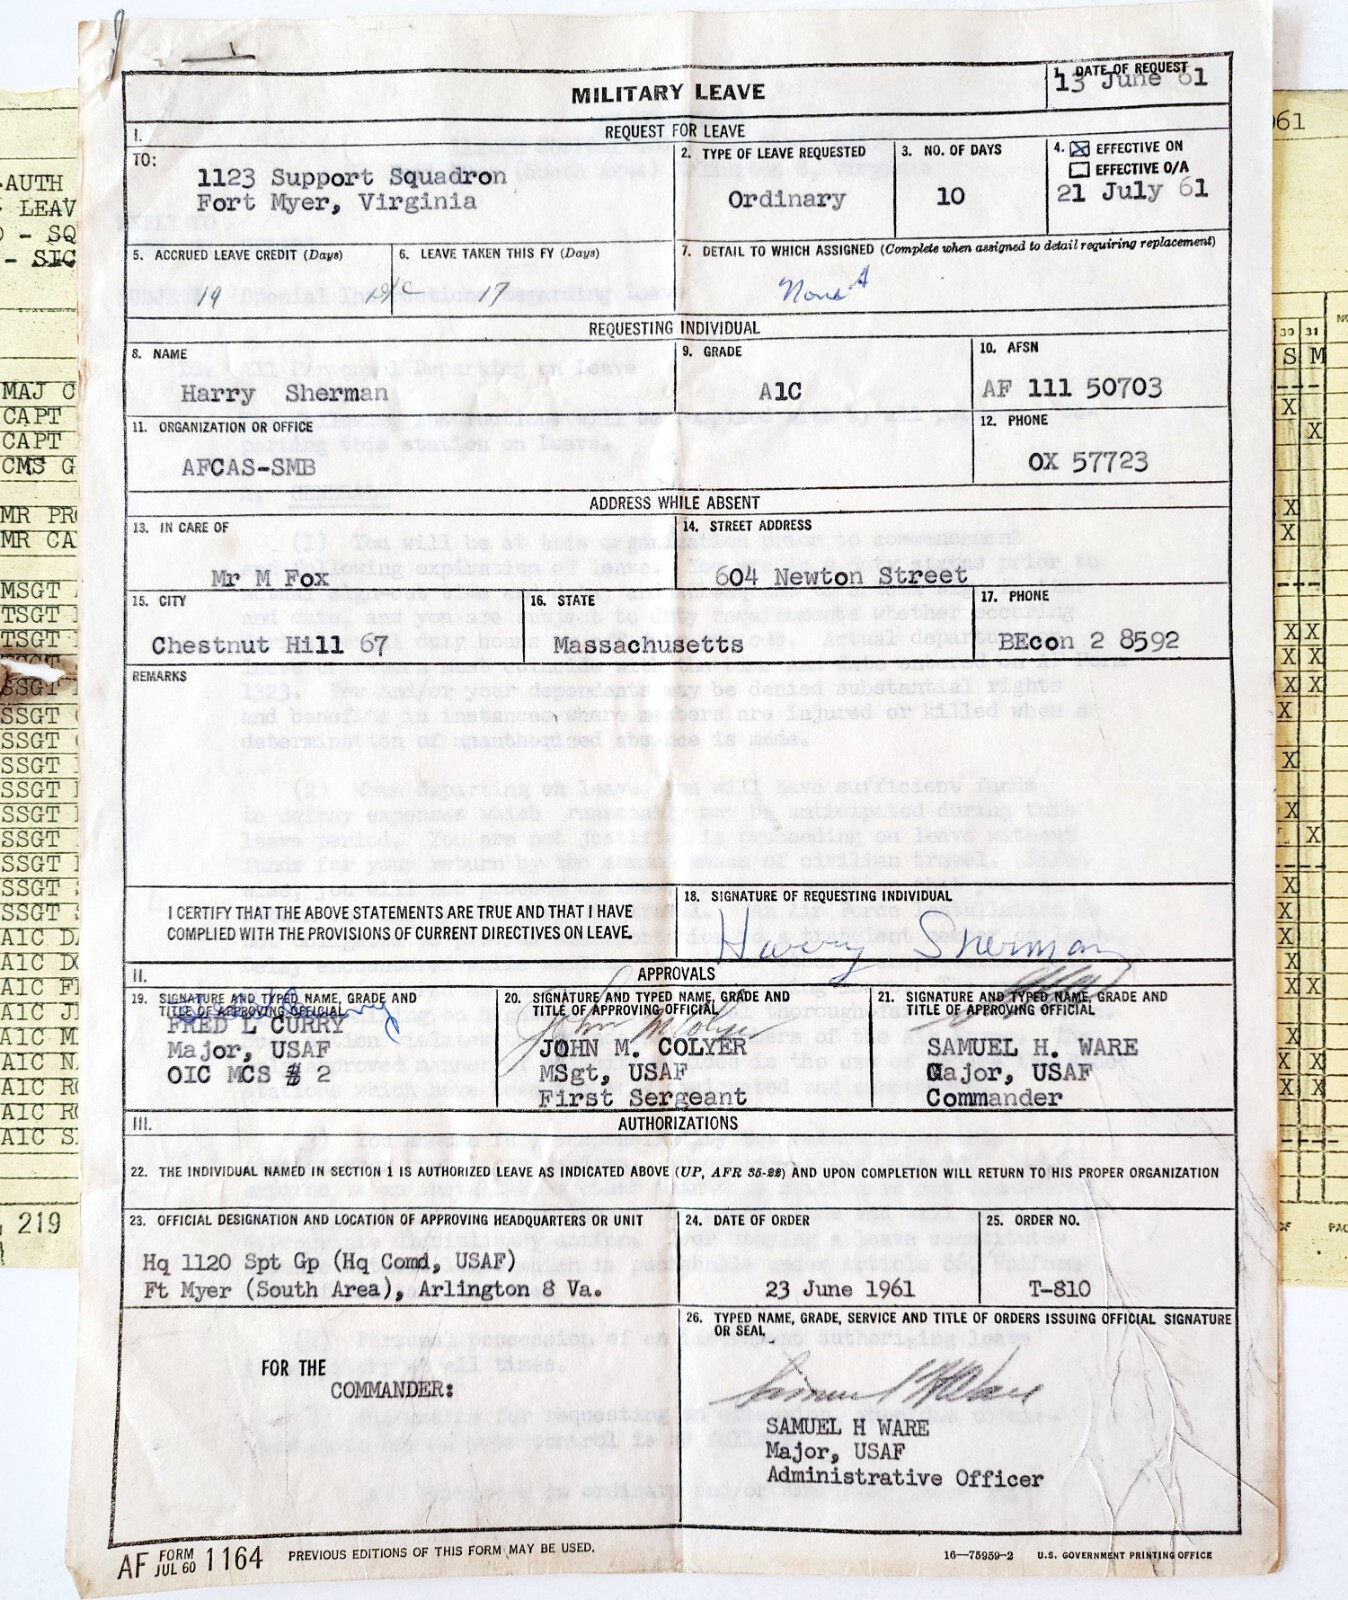 MILITARY LEAVE
1. DATE OF REQUEST
13 June 61
I. REQUEST FOR LEAVE
TO:
1123 Support Squadron
Fort Myer, Virginia
2. TYPE OF LEAVE REQUESTED
Ordinary
3. NO. OF DAYS
10
4. EFFECTIVE ON
EFFECTIVE O/A
21 July 61
5. ACCRUED LEAVE CREDIT (Days)
19
6. LEAVE TAKEN THIS FY (Days)
17
7. DETAIL TO WHICH ASSIGNED (Complete when assigned to detail requiring replacement)
None
REQUESTING INDIVIDUAL
8. NAME
Harry Sherman
9. GRADE
A1C
10. AFSN
AF 111 50703
11. ORGANIZATION OR OFFICE
AFCAS-SMB
12. PHONE
OX 57723
ADDRESS WHILE ABSENT
13. IN CARE OF
Mr M Fox
14. STREET ADDRESS
604 Newton Street
15. CITY
Chestnut Hill 67
16. STATE
Massachusetts
17. PHONE
BEcon 2 8592
REMARKS
I CERTIFY THAT THE ABOVE STATEMENTS ARE TRUE AND THAT I HAVE
COMPLIED WITH THE PROVISIONS OF CURRENT DIRECTIVES ON LEAVE.
18. SIGNATURE OF REQUESTING INDIVIDUAL
Harry Sherman
II. APPROVALS
19. SIGNATURE AND TYPED NAME, GRADE AND
TITLE OF APPROVING OFFICIAL
FRED L CURRY
Major, USAF
OIC MCS # 2
20. SIGNATURE AND TYPED NAME, GRADE AND
TITLE OF APPROVING OFFICIAL
John M Colyer
JOHN M. COLYER
MSgt, USAF
First Sergeant
21. SIGNATURE AND TYPED NAME, GRADE AND
TITLE OF APPROVING OFFICIAL
SAMUEL H. WARE
Major, USAF
Commander
III. AUTHORIZATIONS
22. THE INDIVIDUAL NAMED IN SECTION 1 IS AUTHORIZED LEAVE AS INDICATED ABOVE (UP, AFR 35-22) AND UPON COMPLETION WILL RETURN TO HIS PROPER ORGANIZATION
23. OFFICIAL DESIGNATION AND LOCATION OF APPROVING HEADQUARTERS OR UNIT
Hq 1120 Spt Gp (Hq Comd, USAF)
Ft Myer (South Area), Arlington 8 Va.
24. DATE OF ORDER
23 June 1961
25. ORDER NO.
T-810
FOR THE
COMMANDER:
26. TYPED NAME, GRADE, SERVICE AND TITLE OF ORDERS ISSUING OFFICIAL SIGNATURE
OR SEAL
Samuel H Ware
SAMUEL H WARE
Major, USAF
Administrative Officer
AF FORM JUL 60 1164
PREVIOUS EDITIONS OF THIS FORM MAY BE USED.
16—75959-2 U.S. GOVERNMENT PRINTING OFFICE
AUTH
LEAV
- SQ
- SIC
MAJ C
CAPT
CAPT
CMS G
MR PR
MR CA
MSGT
TSGT
TSGT
SSGT
SSGT
SSGT
SSGT
SSGT
SSGT
SSGT
SSGT
SSGT
SSGT
A1C D
A1C DO
A1C F
A1C J
A1C M
A1C N
A1C R
A1C R
A1C S
219
61
30 31
S M